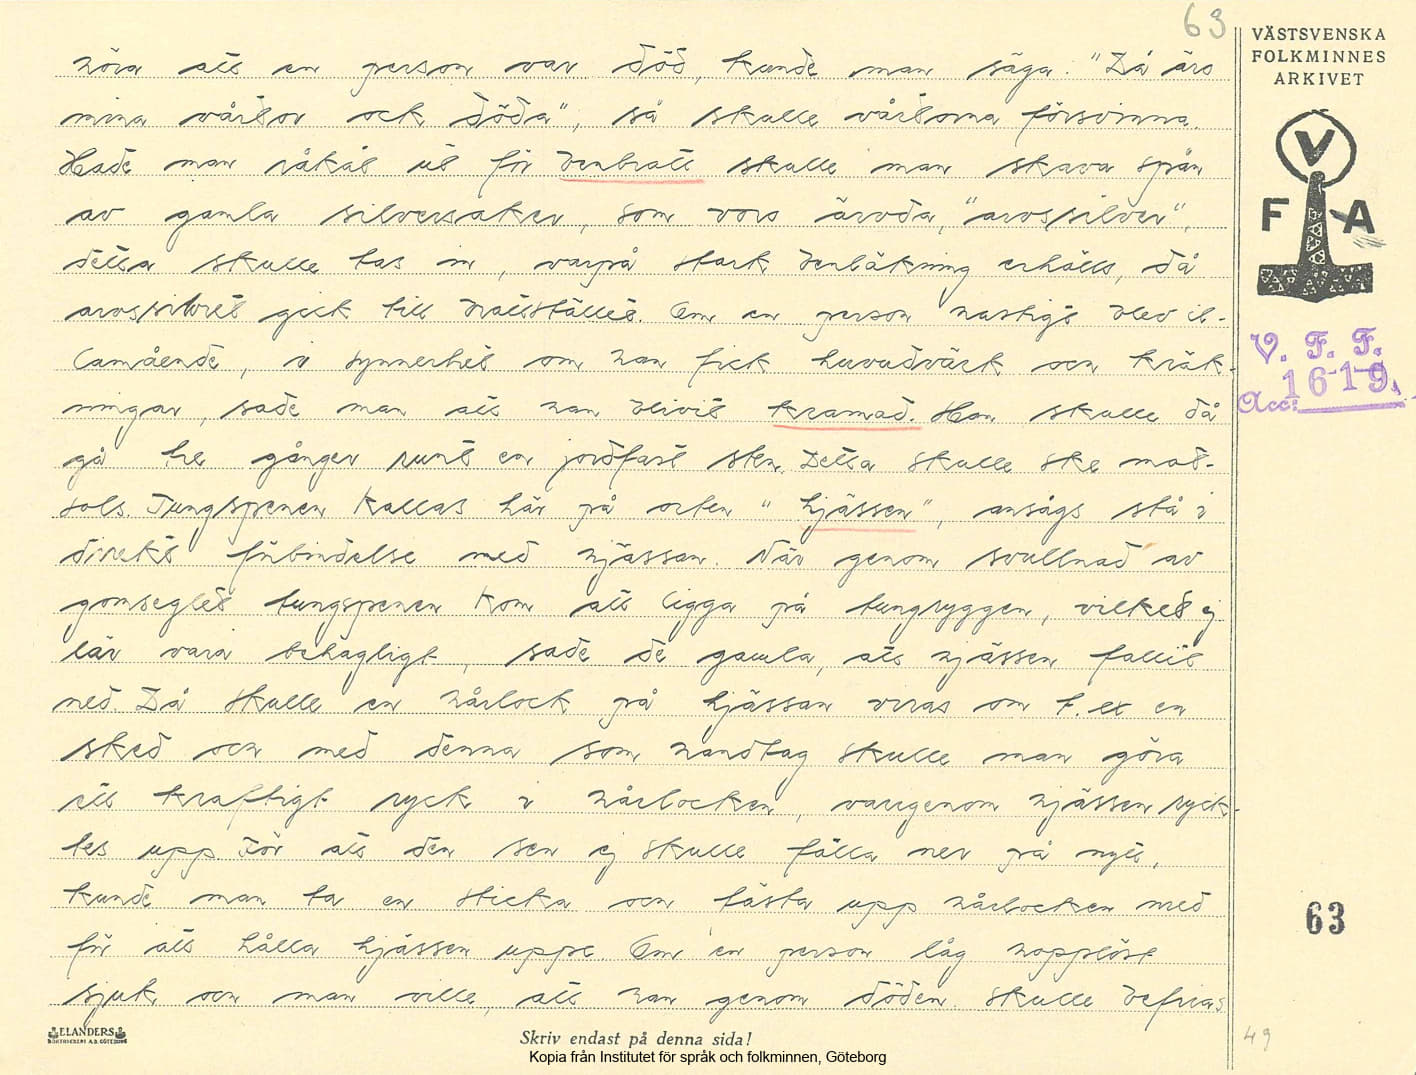 63
VÄSTSVENSKA
FOLKMINNES
ARKIVET
höra att en person var död, kunde man säga: "Då äro
mina vårtor ock döda", så skulle vårtorna försvinna.
Hade man råkat ut för benbrott skulle man skava spån
av gamla silversaker, som voro ärvda, "arvssilver",
detta skulle tas in, varpå stark benläkning erhölls, då
arvssilvret gick till brottstället. Om en person hastigt blev il-
lamående, i synnerhet om han fick huvudvärk och kräk-
ningar, sade man att han blivit kramad. Han skulle då
gå tre gånger runt en jordfast sten. Detta skulle ske mot-
sols. Tungspenen kallas här på orten "hjässen", ansågs stå i
direkt förbindelse med hjässan. När genom svullnad av
gomseglet tungspenen kom att ligga på tungryggen, vilket ej
lär vara behagligt, sade de gamla, att hjässen fallit
ned. Då skulle en hårlock på hjässan viras om t.ex en
sked och med denna som handtag skulle man göra
ett kraftigt ryck i hårlocken, varigenom hjässen ryck-
tes upp. För att den sen ej skulle falla ner på nytt,
kunde man ta en sticka och fästa upp hårlocken med
för att hålla hjässen uppe. Om en person låg hopplöst
sjuk och man ville, att han genom döden skulle befrias
V
F A
V. F. F.
Acc: 1619.
63
49
ELANDERS
BOKTRYCKERI A.B. GÖTEBORG
Skriv endast på denna sida!
Kopia från Institutet för språk och folkminnen, Göteborg